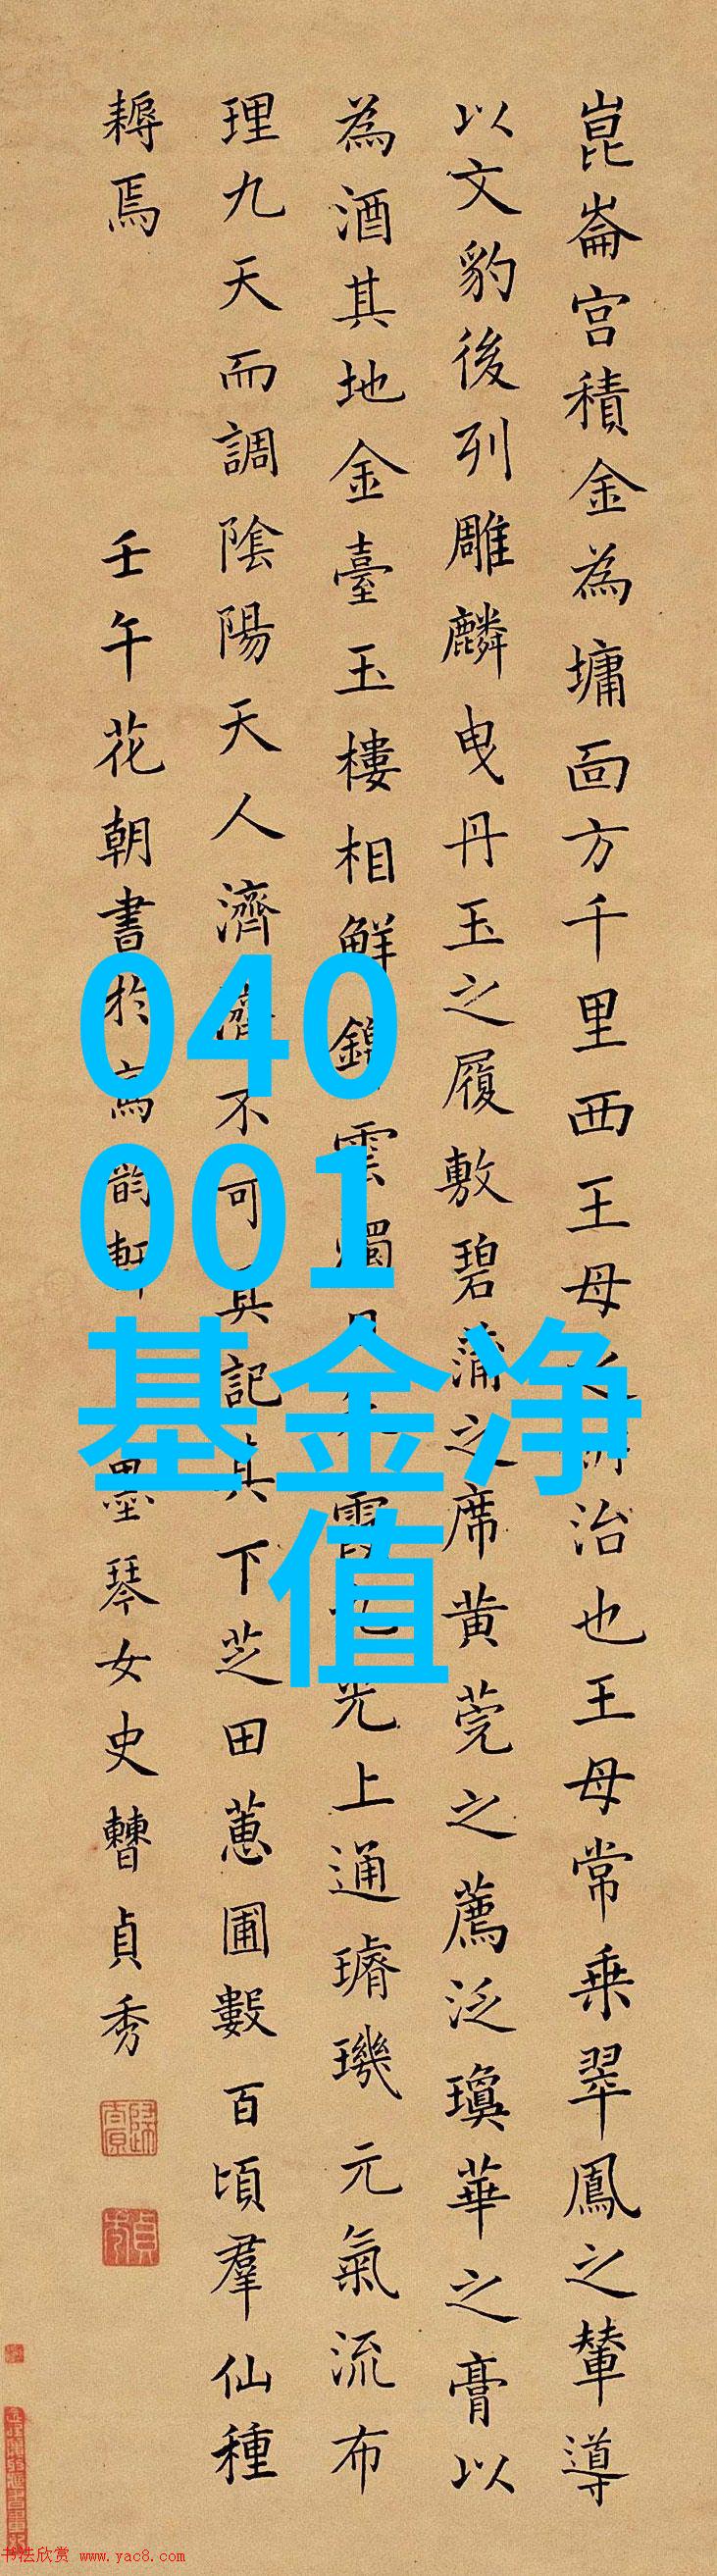 崑崙宮積金為墉面方千里西王母治也王母常乗翠鳳之輦導
以文豹後列雕麟曳丹玉之履敷碧蒲之席黄莞之薦泛瓊華之膏以
為酒其地金臺玉樓相鮮雲光上通璿璣元氣流布
理九天而調隂陽天人濟濟不可具記其下芝田蕙圃數百頃羣仙種
耨焉
壬午花朝書於寫韵軒墨琴女史曹貞秀
040
001
基金净
值
书法欣赏 www.yac8.com